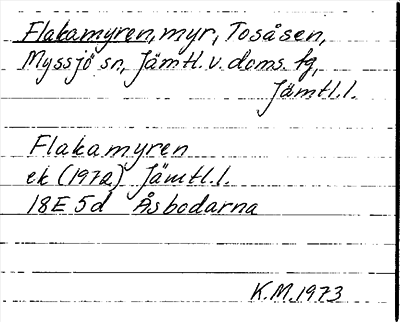 Flakamyren, myr, Tosåsen,
Myssjö sn, Jämtl. v. doms. fg,
Jämtl.l.
Flakamyren
ek (1972) Jämtl.l.
18E 5d Åsbodarna
K.M.1973